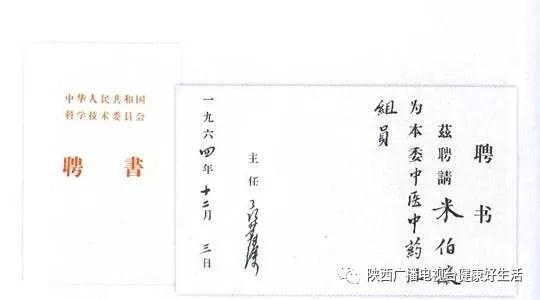 中华人民共和国
科学技术委員会
聘書
聘书
茲聘請 米伯
为本委中医中药
组员
主任
一九六四年十二月三日
陕西广播电视台健康好生活